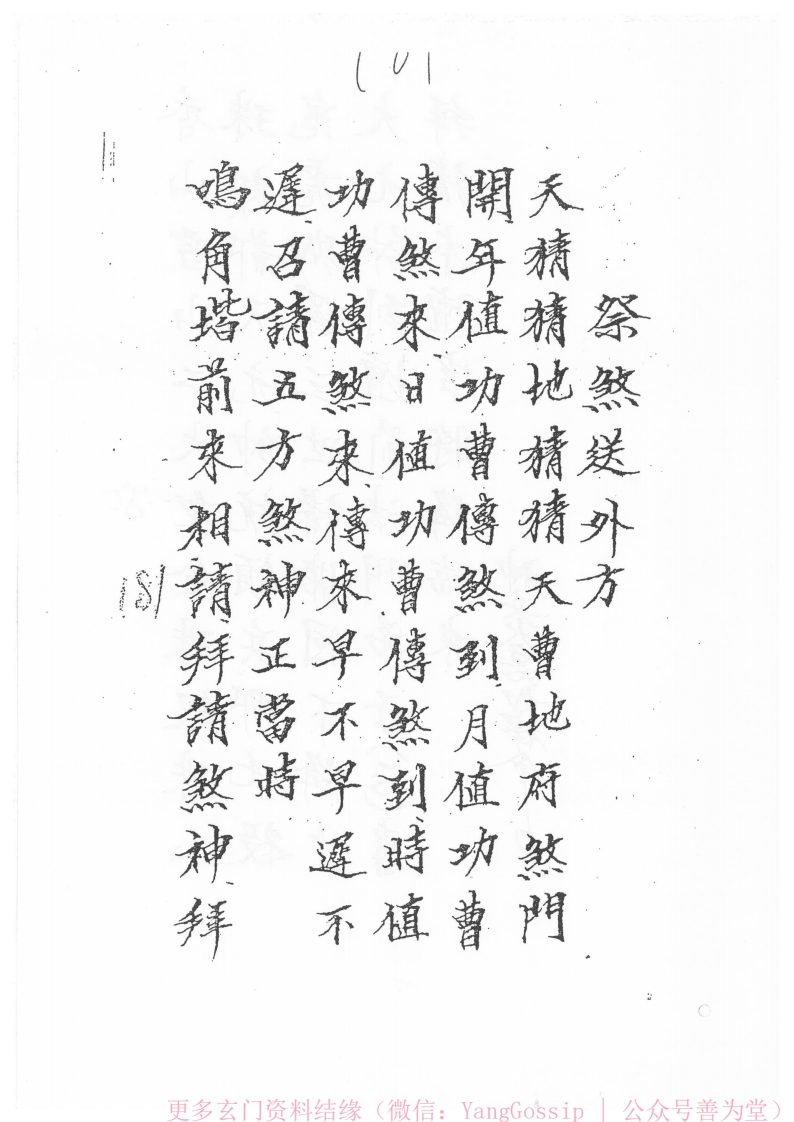 101
祭煞送外方
天猜猜地猜猜天曹地府煞門
開年值功曹傳煞到月值功曹
傳煞來日值功曹傳煞到時值
功曹傳煞來傳來早不早遲不
遲召請五方煞神正當時
鳴角堦前來相請拜請煞神拜
181
更多玄门资料结缘（微信：YangGossip | 公众号善为堂）